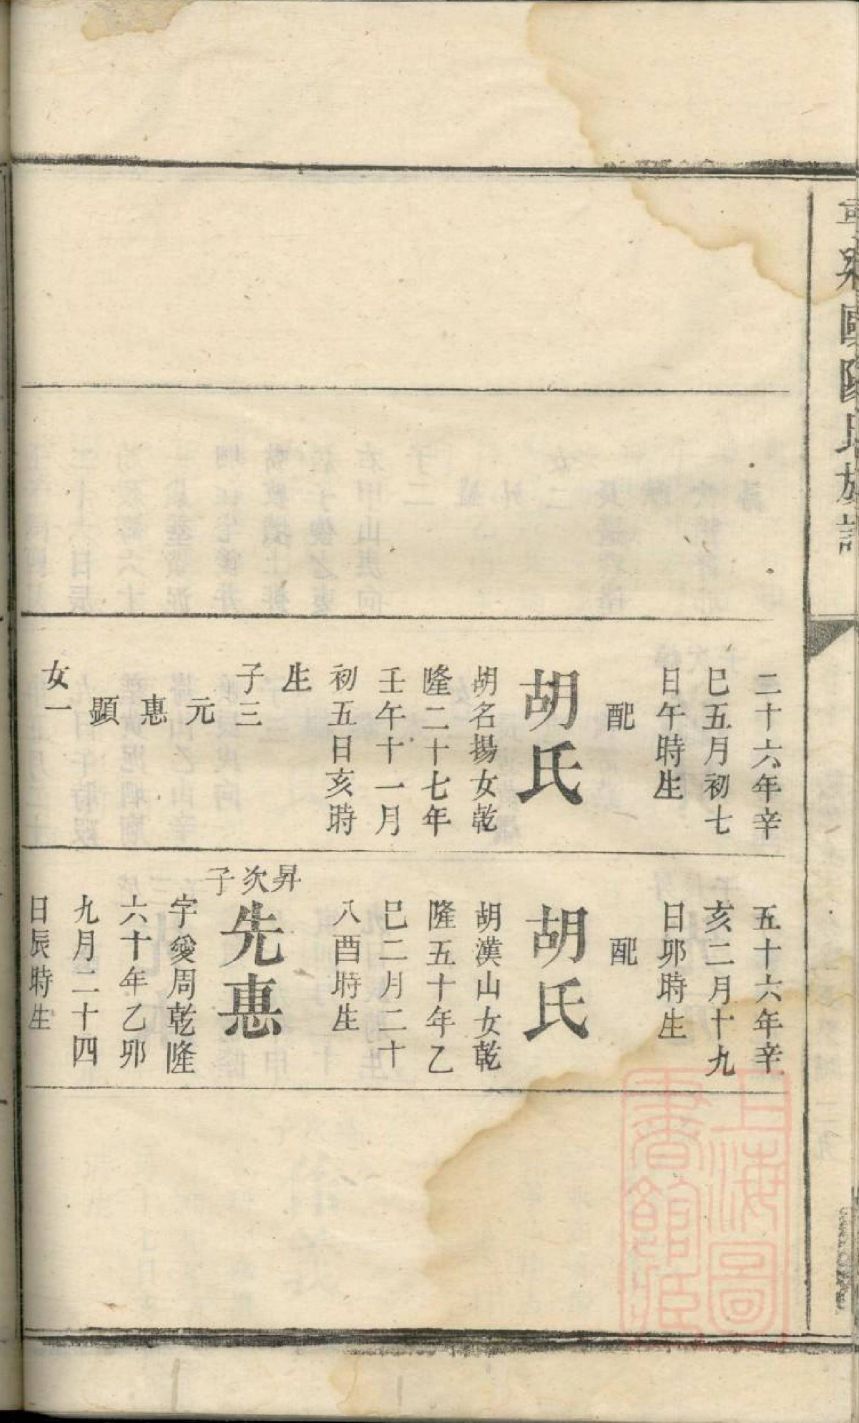 氏族譜
二十六年辛
巳五月初七
日午時生
配
胡氏
胡名揚女乾
隆二十七年
壬午十一月
初五日亥時
生
子三
元
惠
顯
女一
五十六年辛
亥二月十九
日卯時生
配
胡氏
胡漢山女乾
隆五十年乙
巳二月二十
八酉時生
昇次子
先惠
字愛周乾隆
六十年乙卯
九月二十四
日辰時生
上海圖
書館藏